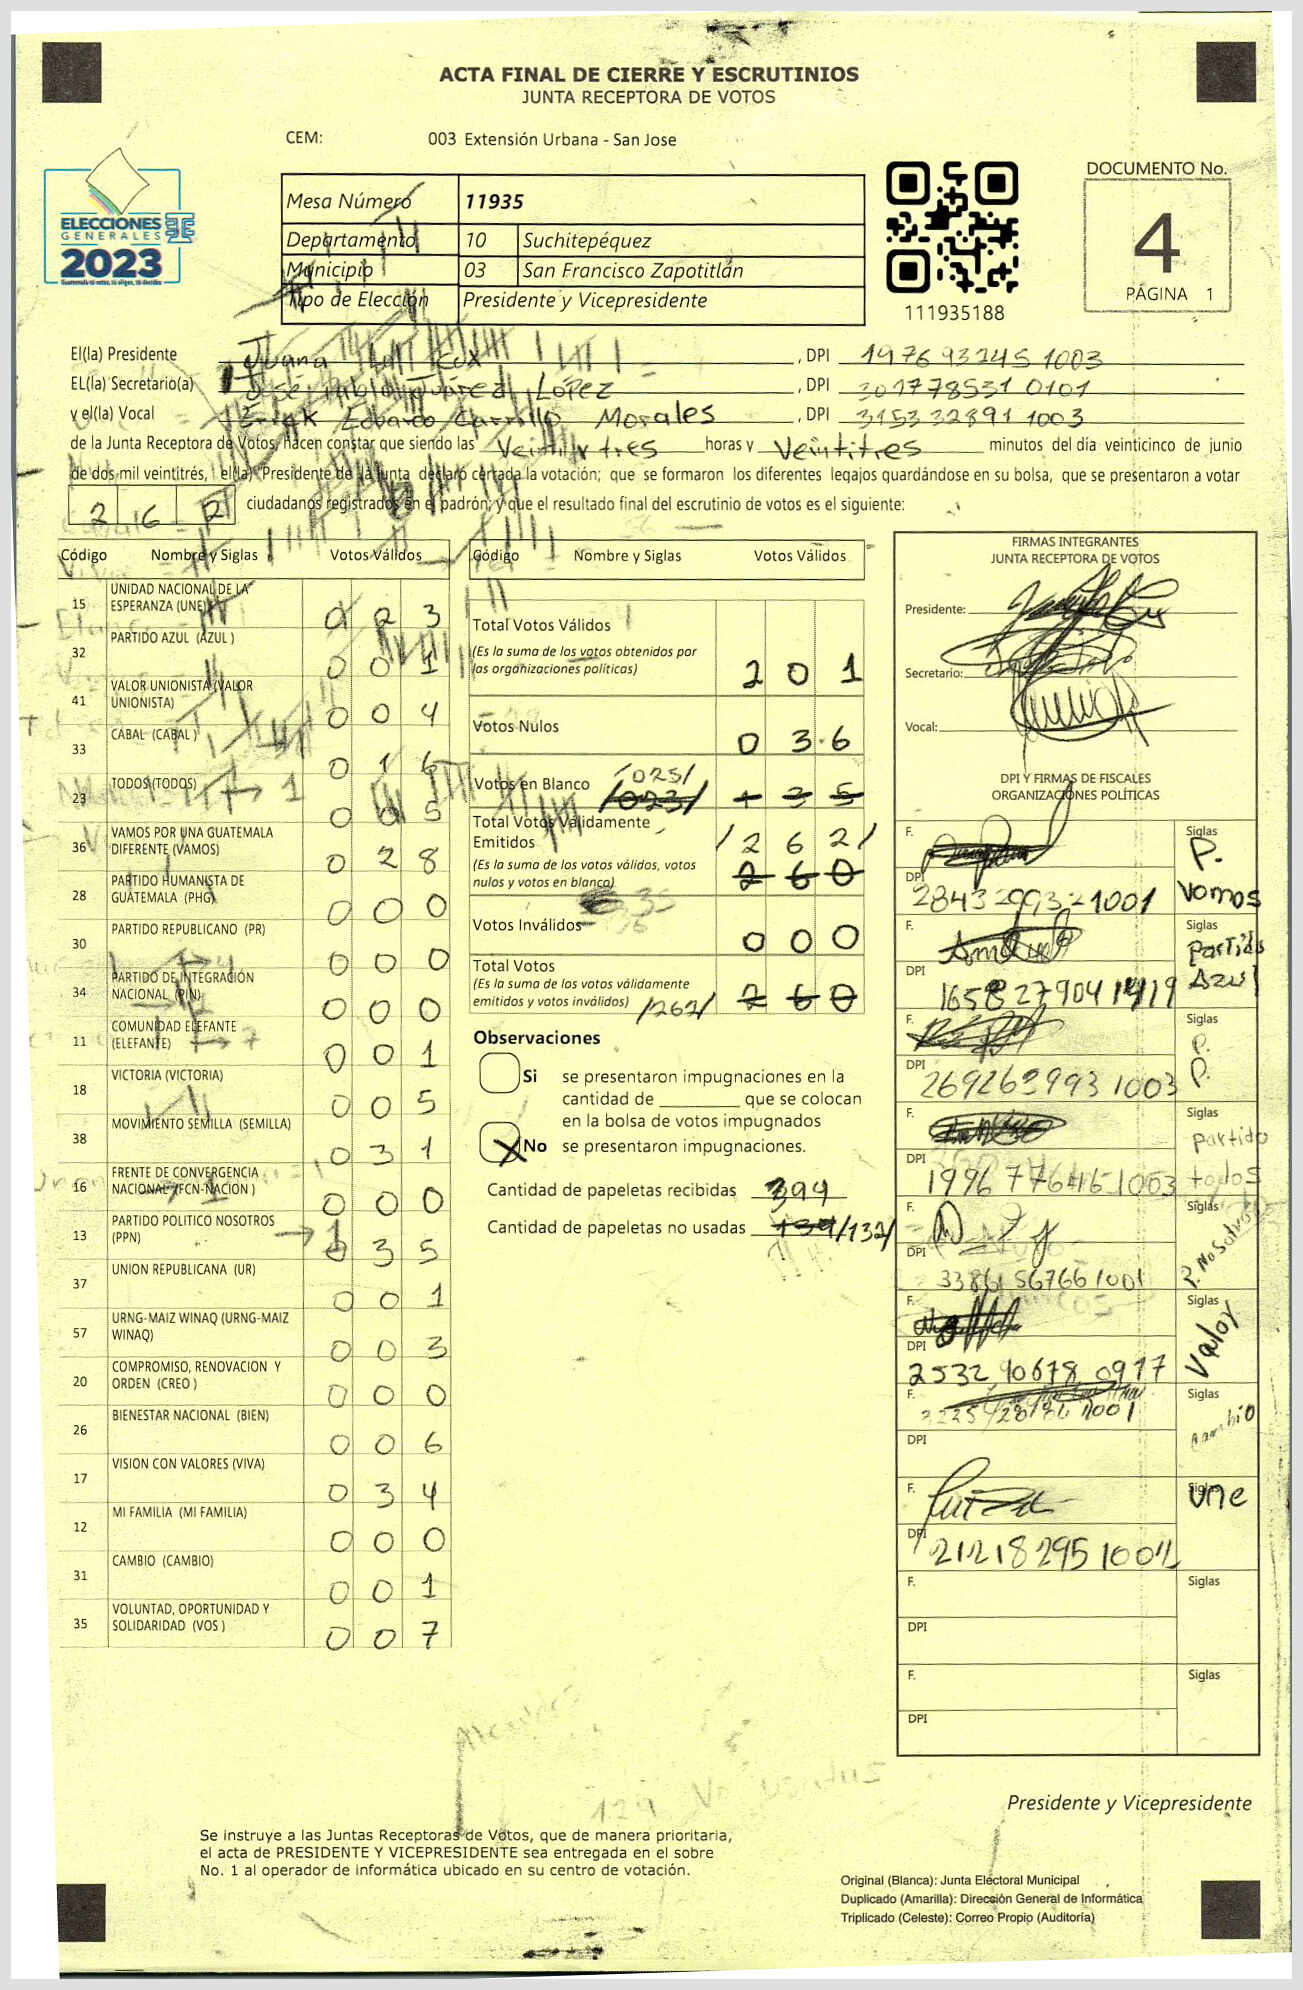 ACTA FINAL DE CIERRE Y ESCRUTINIOS
JUNTA RECEPTORA DE VOTOS
CEM: 003 Extensión Urbana - San Jose
ELECCIONES
GENERALES
2023
Mesa Número 11935
Departamento 10 Suchitepéquez
Municipio 03 San Francisco Zapotitlán
Tipo de Elección Presidente y Vicepresidente
111935188
DOCUMENTO No.
4
PÁGINA 1
El(la) Presidente Juana Cux , DPI 1976 93245 1003
EL(la) Secretario(a) José Pablo Juárez López , DPI 301778531 0101
y el(la) Vocal Erick Eduardo Carrillo Morales , DPI 3153 32891 1003
de la Junta Receptora de Votos, hacen constar que siendo las Veintitres horas y Veintitres minutos del día veinticinco de junio
de dos mil veintitrés, el(la) Presidente de la Junta declaró cerrada la votación; que se formaron los diferentes legajos guardándose en su bolsa, que se presentaron a votar
2 6 2 ciudadanos registrados en el padrón, y que el resultado final del escrutinio de votos es el siguiente:
Código Nombre y Siglas Votos Válidos
15 UNIDAD NACIONAL DE LA
ESPERANZA (UNE) 0 2 3
32 PARTIDO AZUL (AZUL ) 0 0 1
41 VALOR UNIONISTA (VALOR
UNIONISTA) 0 0 4
33 CABAL (CABAL ) 0 1 6
23 TODOS (TODOS) 0 0 5
36 VAMOS POR UNA GUATEMALA
DIFERENTE (VAMOS) 0 2 8
28 PARTIDO HUMANISTA DE
GUATEMALA (PHG) 0 0 0
30 PARTIDO REPUBLICANO (PR) 0 0 0
34 PARTIDO DE INTEGRACIÓN
NACIONAL (PIN) 0 0 0
11 COMUNIDAD ELEFANTE
(ELEFANTE) 0 0 1
18 VICTORIA (VICTORIA) 0 0 5
38 MOVIMIENTO SEMILLA (SEMILLA) 0 3 1
16 FRENTE DE CONVERGENCIA
NACIONAL (FCN-NACION ) 0 0 0
13 PARTIDO POLITICO NOSOTROS
(PPN) 0 3 5
37 UNION REPUBLICANA (UR) 0 0 1
57 URNG-MAIZ WINAQ (URNG-MAIZ
WINAQ) 0 0 3
20 COMPROMISO, RENOVACION Y
ORDEN (CREO ) 0 0 0
26 BIENESTAR NACIONAL (BIEN) 0 0 6
17 VISION CON VALORES (VIVA) 0 3 4
12 MI FAMILIA (MI FAMILIA) 0 0 0
31 CAMBIO (CAMBIO) 0 0 1
35 VOLUNTAD, OPORTUNIDAD Y
SOLIDARIDAD (VOS ) 0 0 7
Código Nombre y Siglas Votos Válidos
Total Votos Válidos
(Es la suma de los votos obtenidos por
las organizaciones políticas) 2 0 1
Votos Nulos 0 3 6
/025/
Votos en Blanco /023/
Total Votos Válidamente
Emitidos /2 6 2/
(Es la suma de los votos válidos, votos
nulos y votos en blanco) 2 6 0
Votos Inválidos 0 0 0
Total Votos
(Es la suma de los votos válidamente
emitidos y votos inválidos) /262/ 2 6 0
Observaciones
Si se presentaron impugnaciones en la
cantidad de ________ que se colocan
en la bolsa de votos impugnados
X No se presentaron impugnaciones.
Cantidad de papeletas recibidas 394
Cantidad de papeletas no usadas 134 /132/
FIRMAS INTEGRANTES
JUNTA RECEPTORA DE VOTOS
Presidente:
Secretario:
Vocal:
DPI Y FIRMAS DE FISCALES
ORGANIZACIONES POLÍTICAS
F. Siglas
P.
Vamos
DPI 2843299321001
F. Siglas
Partido
Azul
DPI 1658 27904 1419
F. Siglas
P.
P.
DPI 269263993 1003
F. Siglas
Partido
todos
DPI 1996 77646 1003
F. Siglas
P. Nosotros
DPI 33861 56766 1001
F. Siglas
Valor
DPI 2532 90678 0917
F. Siglas
Cambio
DPI
F. Siglas
Une
DPI 21218295 1001
F. Siglas
DPI
F. Siglas
DPI
Presidente y Vicepresidente
Se instruye a las Juntas Receptoras de Votos, que de manera prioritaria,
el acta de PRESIDENTE Y VICEPRESIDENTE sea entregada en el sobre
No. 1 al operador de informática ubicado en su centro de votación.
Original (Blanca): Junta Electoral Municipal
Duplicado (Amarilla): Dirección General de Informática
Triplicado (Celeste): Correo Propio (Auditoría)